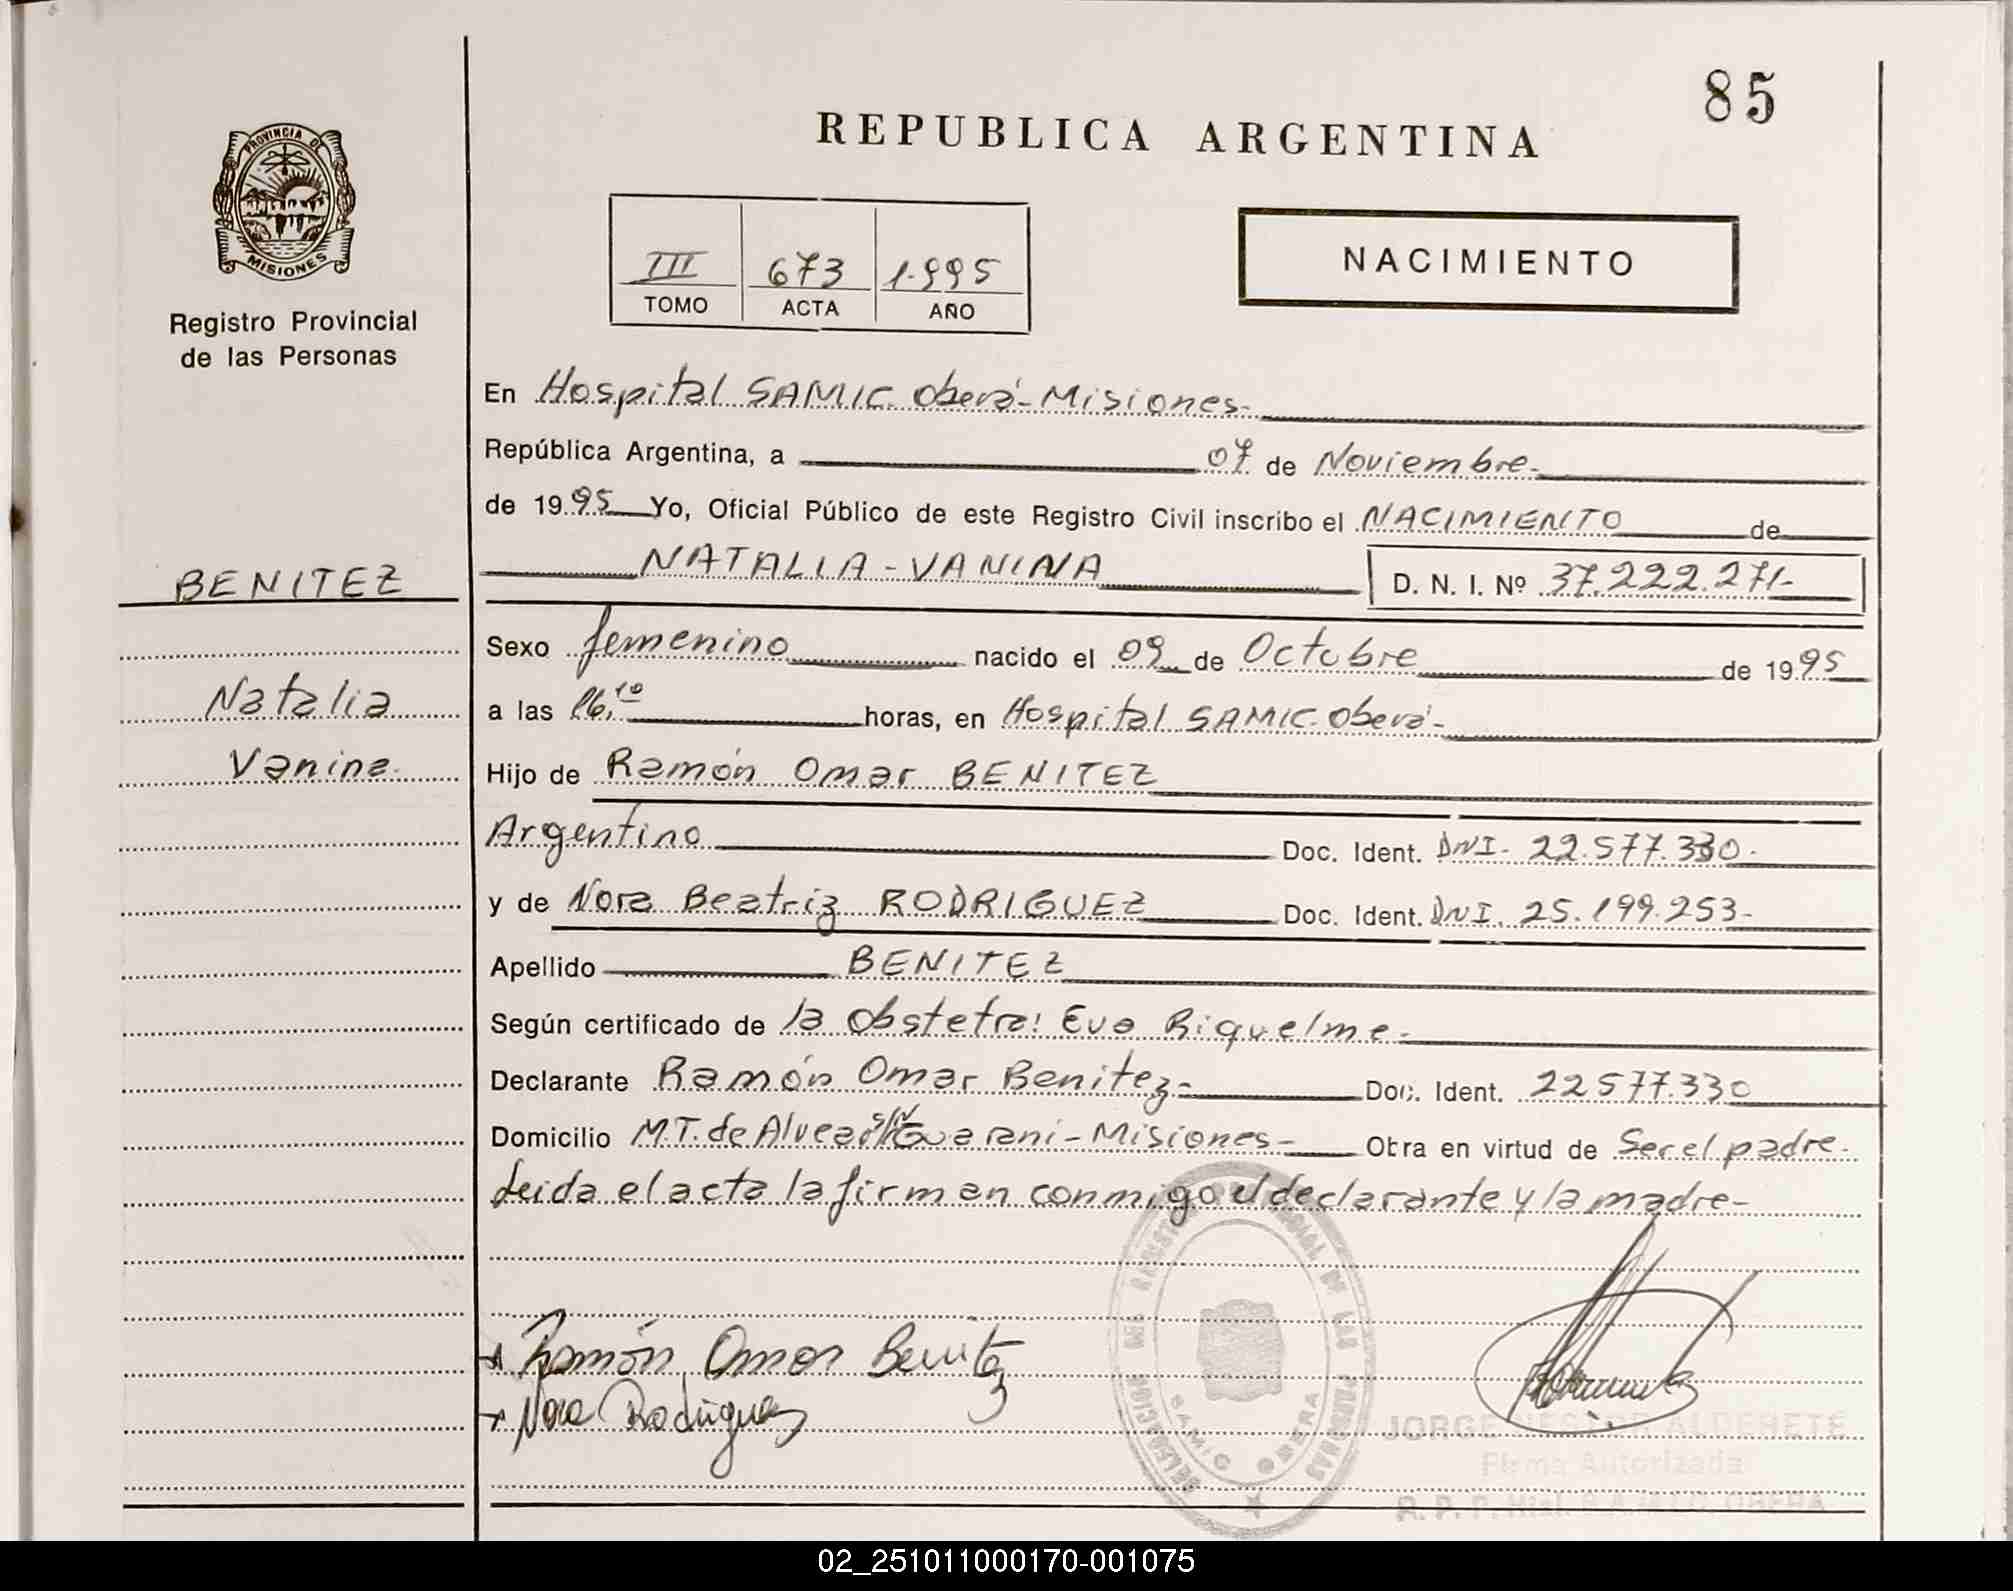 85
REPUBLICA ARGENTINA
PROVINCIA DE
MISIONES
Registro Provincial
de las Personas
III 673 1.995
TOMO ACTA AÑO
NACIMIENTO
En Hospital SAMIC Oberá-Misiones-
República Argentina, a 07 de Noviembre-
de 1995 Yo, Oficial Público de este Registro Civil inscribo el NACIMIENTO de
NATALIA-VANINA D. N. I. Nº 37.222.271-
BENITEZ
Natalia
Vanina-
Sexo femenino nacido el 09 de Octubre de 1995
a las 16,10 horas, en Hospital SAMIC-Oberá-
Hijo de Ramón Omar BENITEZ
Argentino Doc. Ident. DNI- 22.577.330-
y de Nora Beatriz RODRIGUEZ Doc. Ident. DNI. 25.199.253-
Apellido BENITEZ
Según certificado de la obstetra: Eva Riquelme-
Declarante Ramón Omar Benitez- Doc. Ident. 22577.330
Domicilio M.T. de Alvear S/N Guarani-Misiones- Obra en virtud de Ser el padre-
Leida el acta la firman conmigo el declarante y la madre-
Ramón Omar Benitez
Nora Rodriguez
SAMIC OBERA
JORGE NESTOR ALDERETE
Firma Autorizada
R. P. P. Hial. S.A.M.I.C. OBERA
02_251011000170-001075